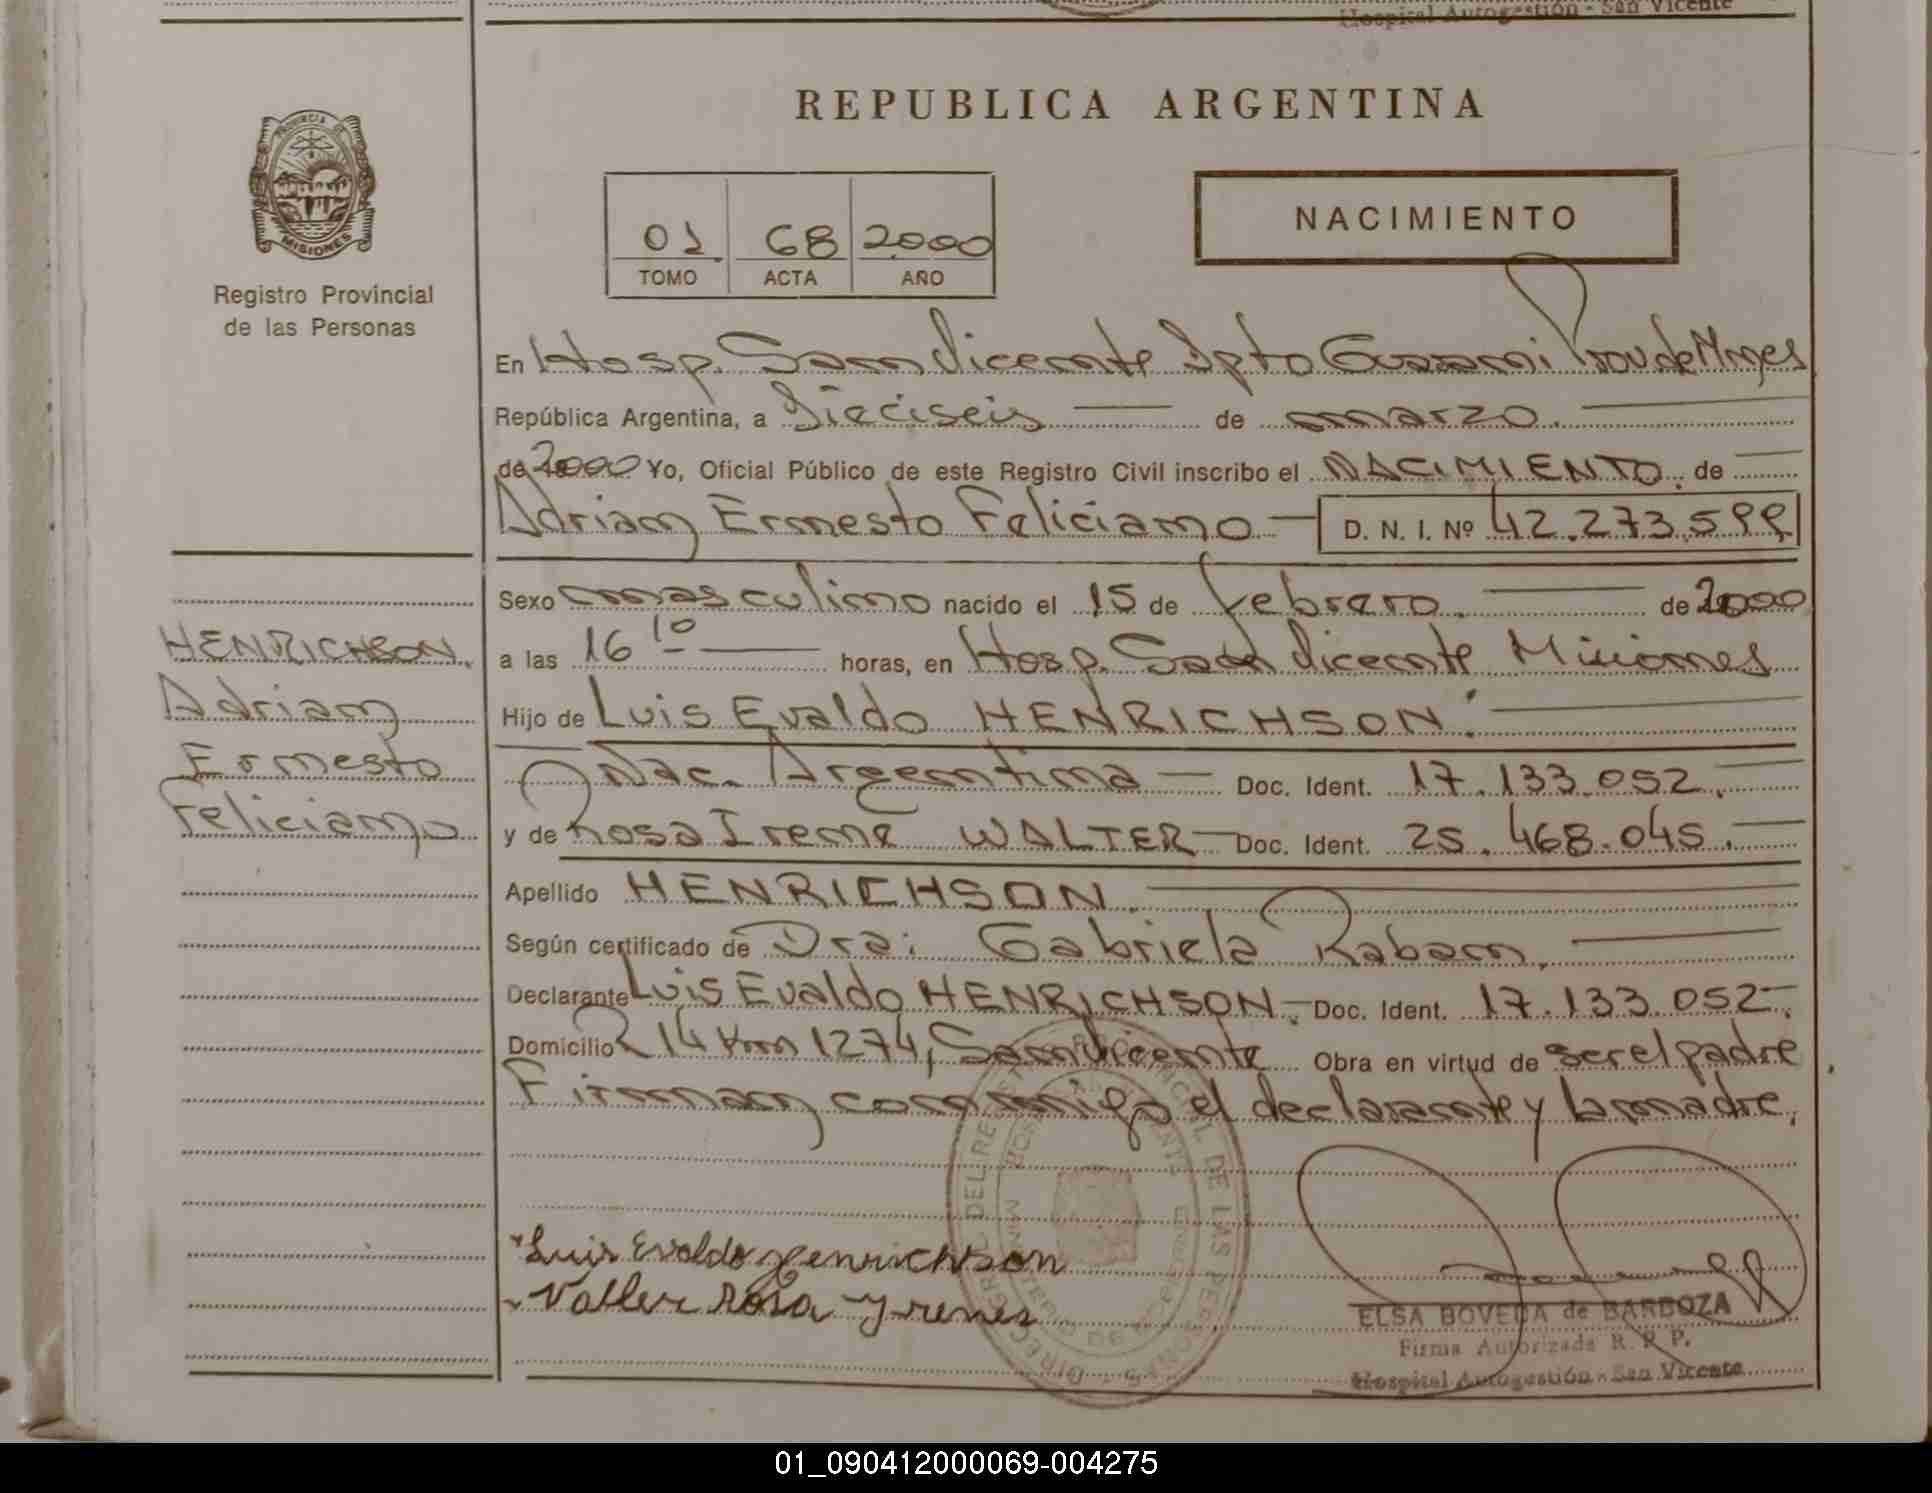 Hospital Autogestión - San Vicente
REPUBLICA ARGENTINA
PROVINCIA DE
MISIONES
Registro Provincial
de las Personas
01 68 2000
TOMO ACTA AÑO
NACIMIENTO
En Hosp. San Vicente Dpto Guarani Prov de Mnes
República Argentina, a Dieciseis de marzo.
de 2000 Yo, Oficial Público de este Registro Civil inscribo el NACIMIENTO. de
Adrian Ernesto Feliciano D. N. I. Nº 42.273.599
Sexo masculino nacido el 15 de febrero. de 2000
a las 16 10 horas, en Hosp. San Vicente Misiones
Hijo de Luis Evaldo HENRICHSON.
Nac. Argentina Doc. Ident. 17.133.052.
y de Rosa Irene WALTER Doc. Ident. 25.468.045.
Apellido HENRICHSON.
Según certificado de Dra: Gabriela Raban.
Declarante Luis Evaldo HENRICHSON. Doc. Ident. 17.133.052.
Domicilio R 14 Km 1274, San Vicente Obra en virtud de ser el padre
Firman conmigo el declarante y la madre.
HENRICHSON.
Adrian
Ernesto
Feliciano
Luis Evaldo Henrichson
Valter Rosa Yrenes
ELSA BOVEDA de BARBOZA
Firma Autorizada R. P. P.
Hospital Autogestión - San Vicente
01_090412000069-004275